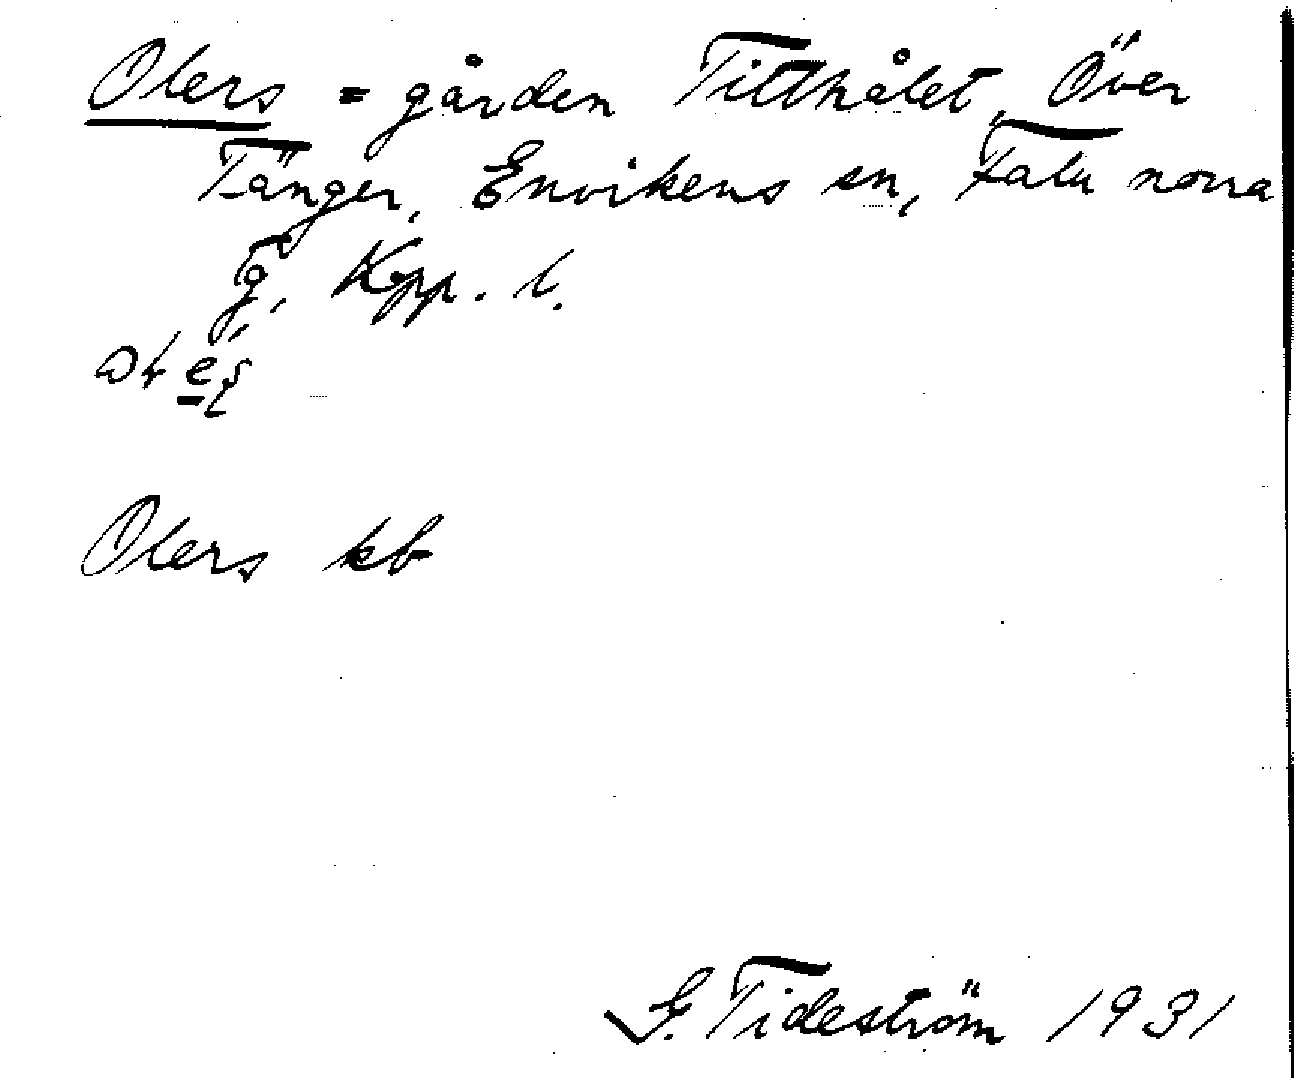 Olers = gården Titthålet, Över
Tänger, Envikens sn, Falu norra
Kpp. l.
Olers kb
G. Tideström 1931